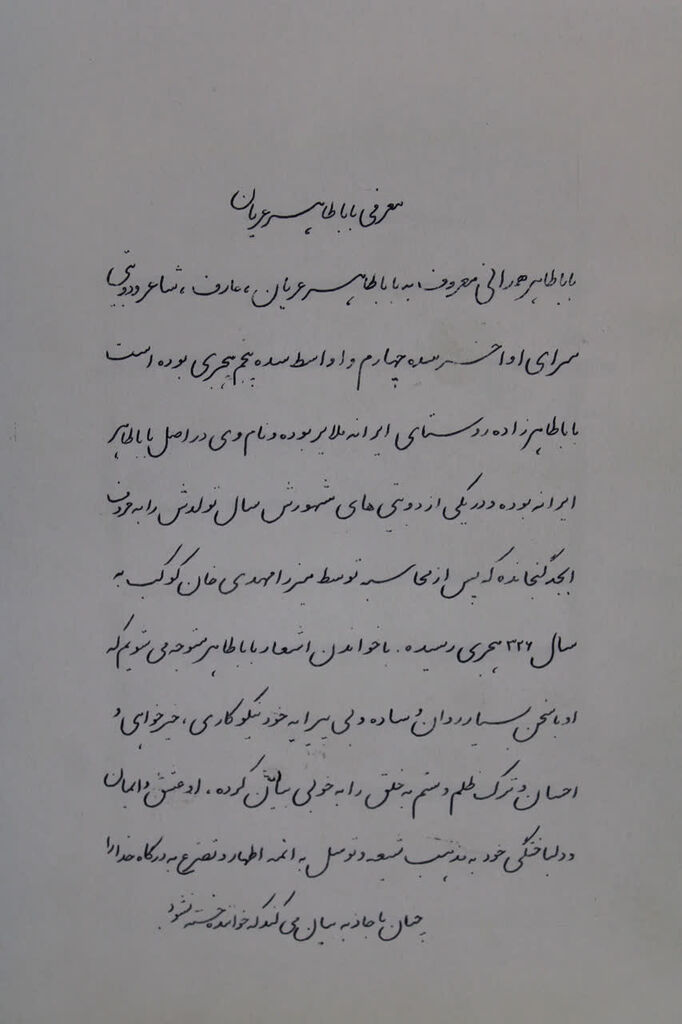 معرفی باباطاهر عریان
باباطاهر همدانی معروف به باباطاهر عریان، عارف، شاعر و دوبیتی
سرای اواخر سده چهارم و اواسط سده پنجم هجری بوده است
باباطاهر زاده روستای ایرانه ملایر بوده و نام وی در اصل باباطاهر
ایرانه بوده و در یکی از دوبیتی های مشهورش سال تولدش را به حروف
ابجد گنجانده که پس از محاسبه توسط میرزا مهدی خان کوکب به
سال ۳۲۶ هجری رسیده. با خواندن اشعار باباطاهر متوجه می شویم که
او با سخن بسیار روان و ساده و بی پیرایه خود نیکوکاری، خیرخواهی و
احسان و ترک ظلم و ستم به خلق را به خوبی بیان کرده، او عشق و ایمان
و دلباختگی خود به مذهب شیعه و توسل به ائمه اطهار و تضرع به درگاه خدا را
چنان با جاذبه بیان می کند که خواننده خسته نشود.